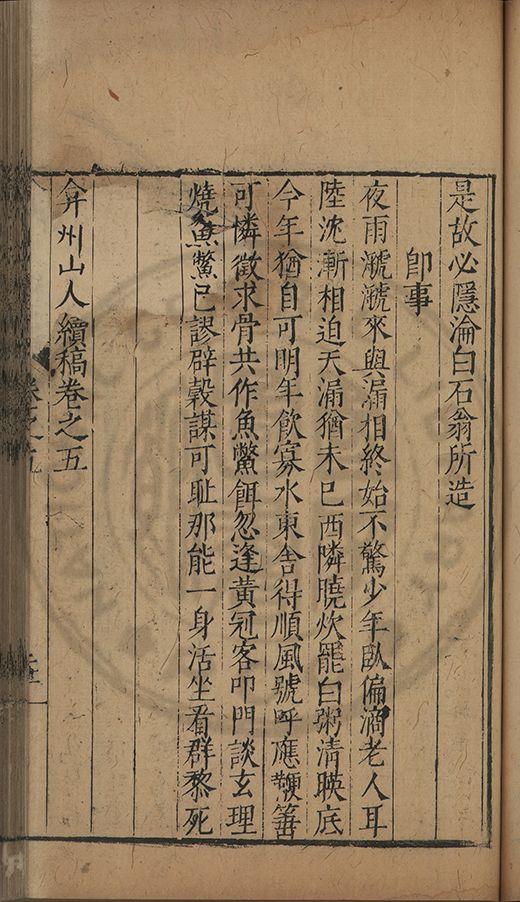 是故必隱淪白石翁所造
卽事
夜雨㶁㶁來與漏相終始不驚少年臥偏滴老人耳
陸沈漸相迫天漏猶未已西隣曉炊罷白粥清暎底
今年猶自可明年飲寡水東舍得順風號呼應鞭箠
可憐徵求骨共作魚鱉餌忽逢黃冠客叩門談玄理
燒𤋎鱉已謬辟穀謀可恥那能一身活坐看群黎死
弇州山人續稿卷之五